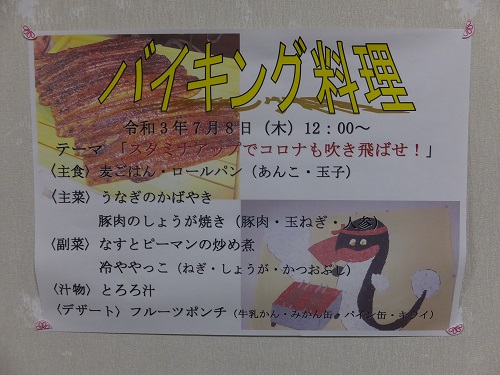 バイキング料理
令和3年7月8日（木）12：00～
テーマ 「スタミナアップでコロナも吹き飛ばせ！」
〈主食〉麦ごはん・ロールパン（あんこ・玉子）
〈主菜〉うなぎのかばやき
豚肉のしょうが焼き（豚肉・玉ねぎ・人参）
〈副菜〉なすとピーマンの炒め煮
冷ややっこ（ねぎ・しょうが・かつおぶし）
〈汁物〉とろろ汁
〈デザート〉フルーツポンチ（牛乳かん・みかん缶・パイン缶・キウイ）